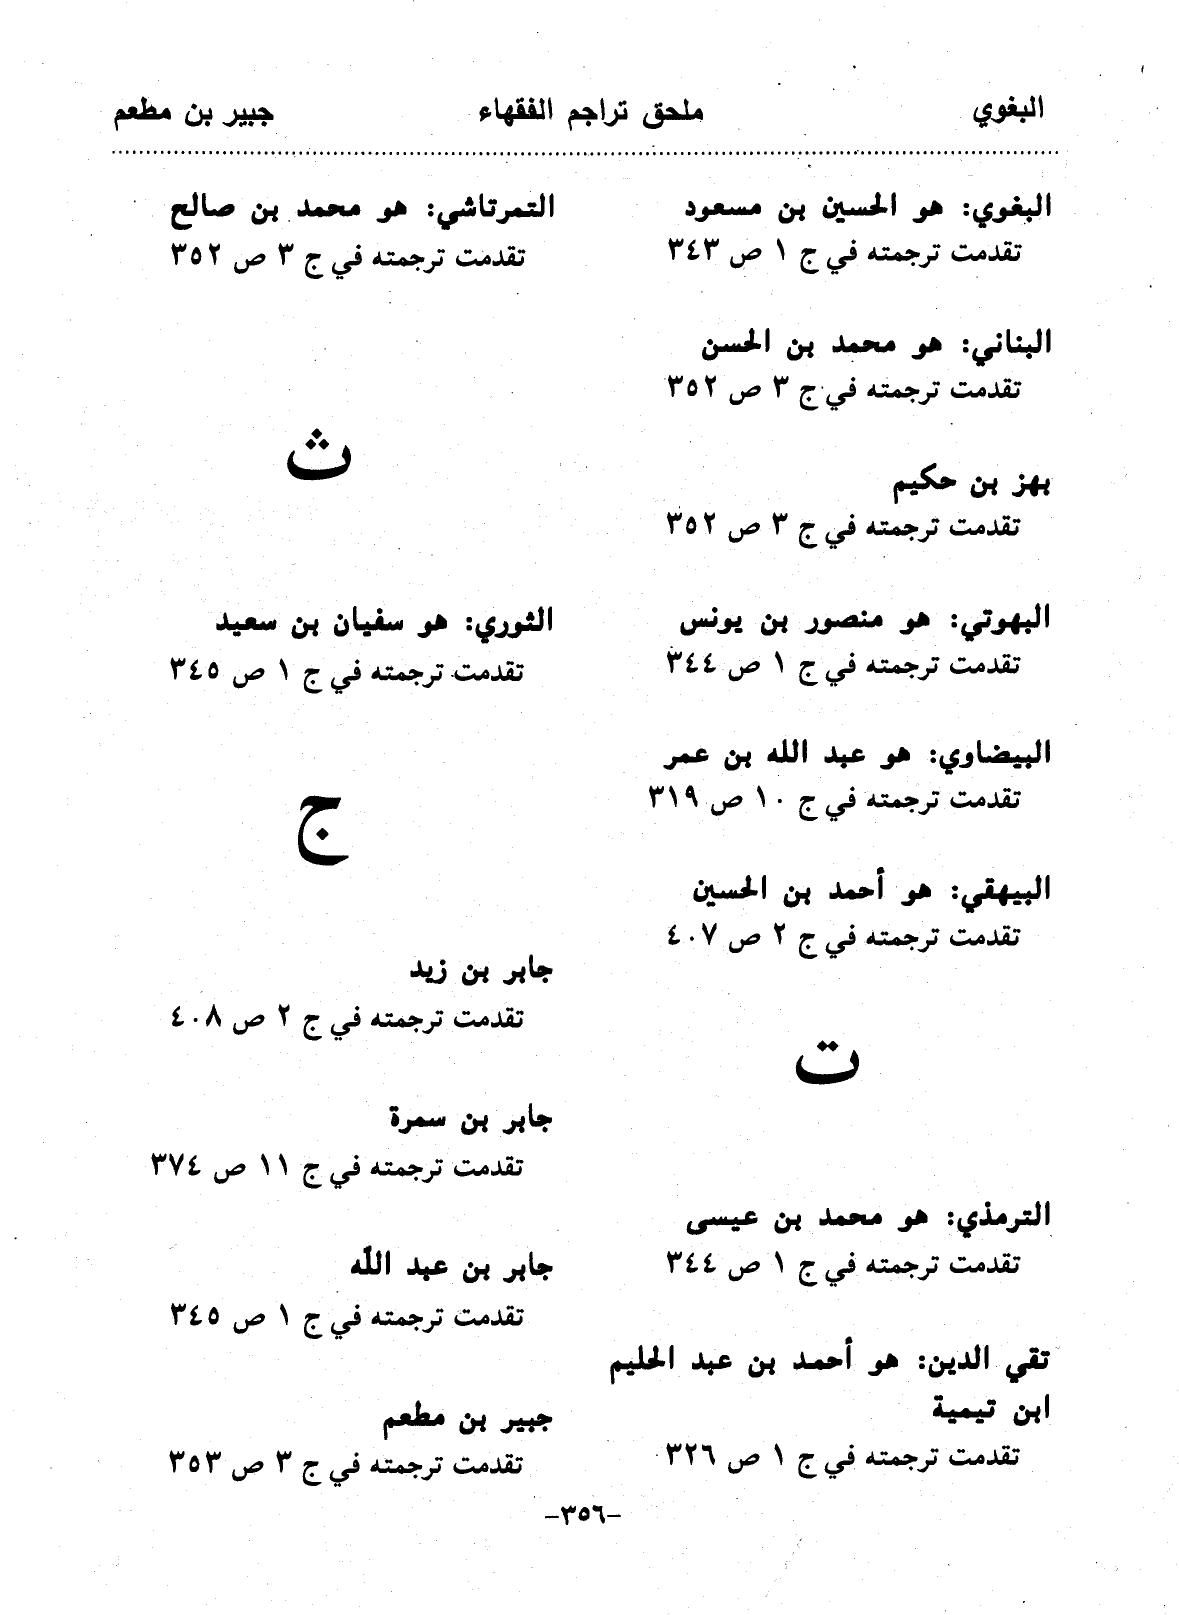 البغوي ملحق تراجم الفقهاء جبير بن مطعم
البغوي: هو الحسين بن مسعود
تقدمت ترجمته في ج ١ ص ٣٤٣
البناني: هو محمد بن الحسن
تقدمت ترجمته في ج ٣ ص ٣٥٢
بهز بن حكيم
تقدمت ترجمته في ج ٣ ص ٣٥٢
البهوتي: هو منصور بن يونس
تقدمت ترجمته في ج ١ ص ٣٤٤
البيضاوي: هو عبد الله بن عمر
تقدمت ترجمته في ج ١٠ ص ٣١٩
البيهقي: هو أحمد بن الحسين
تقدمت ترجمته في ج ٢ ص ٤٠٧
ت
الترمذي: هو محمد بن عيسى
تقدمت ترجمته في ج ١ ص ٣٤٤
تقي الدين: هو أحمد بن عبد الحليم
ابن تيمية
تقدمت ترجمته في ج ١ ص ٣٢٦
التمرتاشي: هو محمد بن صالح
تقدمت ترجمته في ج ٣ ص ٣٥٢
ث
الثوري: هو سفيان بن سعيد
تقدمت ترجمته في ج ١ ص ٣٤٥
ج
جابر بن زيد
تقدمت ترجمته في ج ٢ ص ٤٠٨
جابر بن سمرة
تقدمت ترجمته في ج ١١ ص ٣٧٤
جابر بن عبد الله
تقدمت ترجمته في ج ١ ص ٣٤٥
جبير بن مطعم
تقدمت ترجمته في ج ٣ ص ٣٥٣
-٣٥٦-